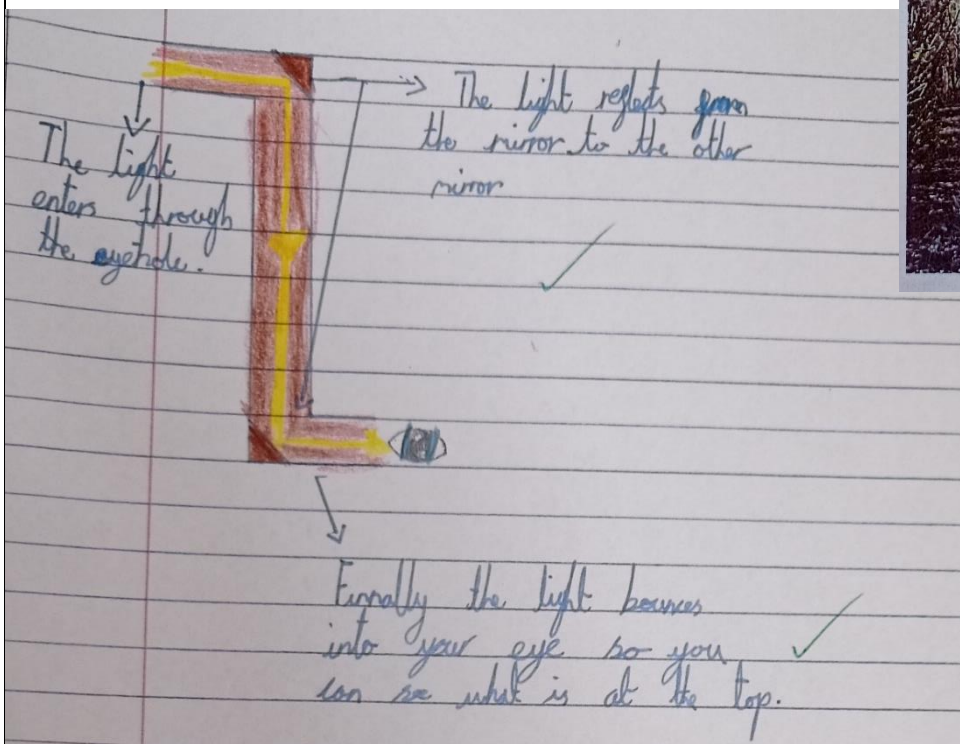 The light
enters through
the eyehole.
The light reflects from
the mirror to the other
mirror
Finnally the light bounces
into your eye so you
can see what is at the top.